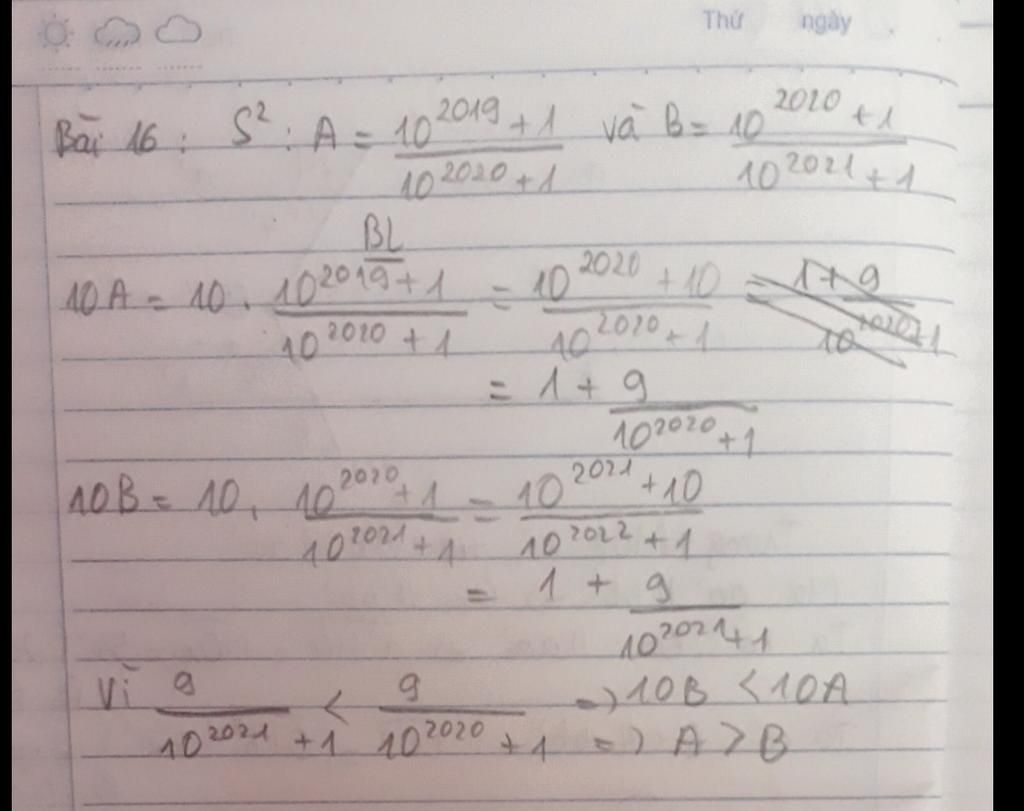 Thứ ngày
Bài 16 : S² : A = (10^2019 + 1)/(10^2020 + 1) và B = (10^2020 + 1)/(10^2021 + 1)
BL
10A = 10 . (10^2019 + 1)/(10^2020 + 1) = (10^2020 + 10)/(10^2020 + 1) = 1 + 9/(10^2020 + 1)
= 1 + 9/(10^2020 + 1)
10B = 10 . (10^2020 + 1)/(10^2021 + 1) = (10^2021 + 10)/(10^2022 + 1)
= 1 + 9/(10^2021 + 1)
Vì 9/(10^2021 + 1) < 9/(10^2020 + 1) => 10B < 10A
=> A > B